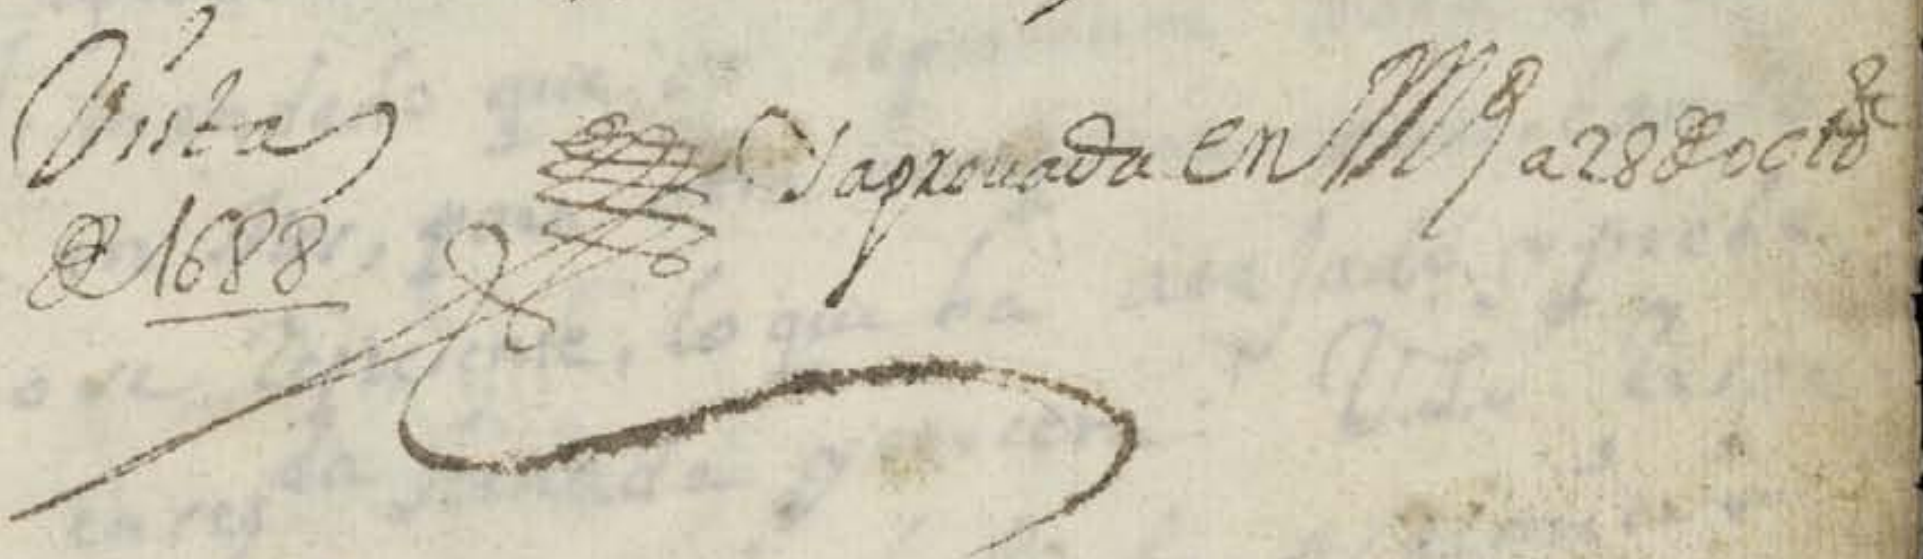 Vista y aprouada en Md a 28 de octbre
de 1688